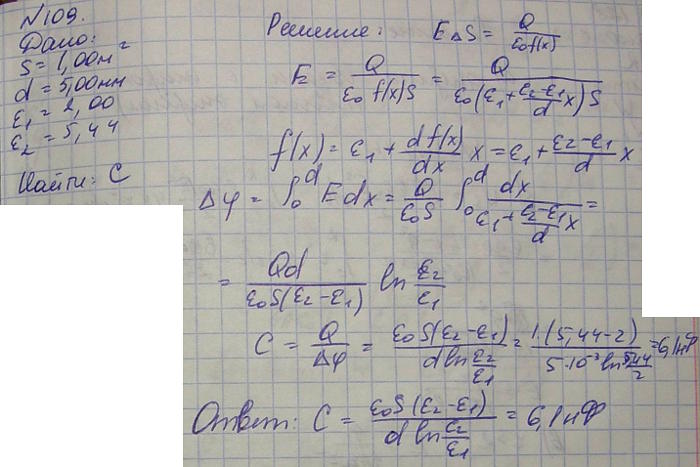 №109.
Дано:
S = 1,00 м²
d = 5,00 мм
ε₁ = 2,00
ε₂ = 5,44
Найти: C
Решение: EΔS = Q/(ε₀f(x))
E = Q/(ε₀ f(x)S) = Q/(ε₀(ε₁ + (ε₂-ε₁)/d x) S)
f(x) = ε₁ + df(x)/dx x = ε₁ + (ε₂-ε₁)/d x
Δφ = ∫₀ᵈ Edx = Q/(ε₀S) ∫₀ᵈ dx/(ε₁ + (ε₂-ε₁)/d x) =
= Qd/(ε₀S(ε₂-ε₁)) ln ε₂/ε₁
C = Q/Δφ = ε₀S(ε₂-ε₁)/(d ln ε₂/ε₁) = 1·(5,44-2)/(5·10⁻³ ln 5,44/2) = 6,1нФ
Ответ: C = ε₀S(ε₂-ε₁)/(d ln ε₂/ε₁) = 6,1нФ